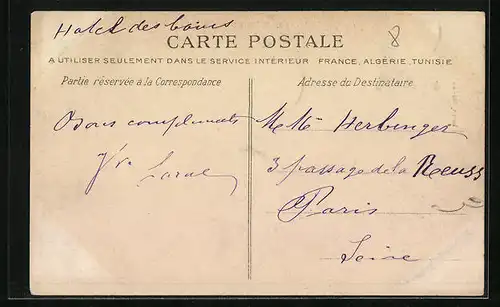 Hotel des bains
CARTE POSTALE
8
A UTILISER SEULEMENT DANS LE SERVICE INTÉRIEUR FRANCE, ALGÉRIE, TUNISIE
Partie réservée à la Correspondance
Adresse du Destinataire
Bons compliments
Herbinger
3 passage de la Reuss
Paris
Seine